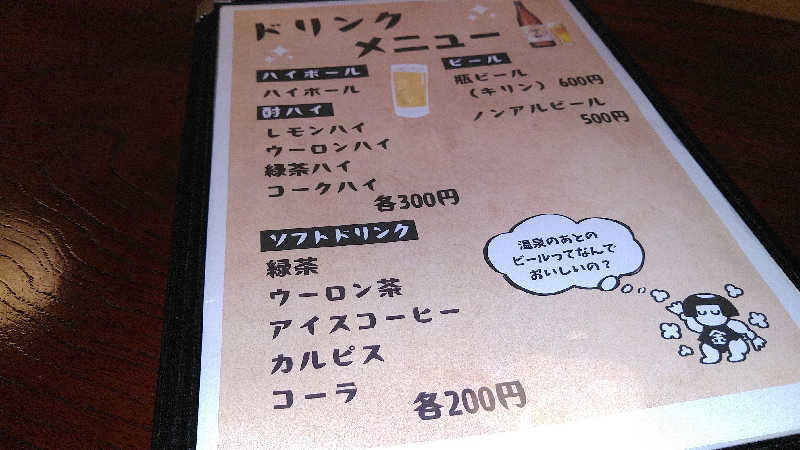 ドリンク
メニュー
ハイボール
ハイボール
酎ハイ
レモンハイ
ウーロンハイ
緑茶ハイ
コークハイ
各300円
ビール
瓶ビール
（キリン） 600円
ノンアルビール
500円
ソフトドリンク
緑茶
ウーロン茶
アイスコーヒー
カルピス
コーラ
各200円
温泉のあとの
ビールってなんで
おいしいの？
金